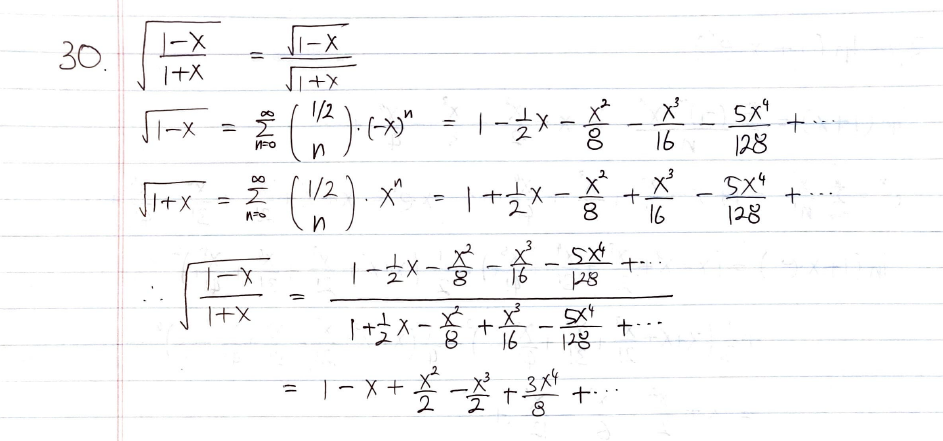 30. √((1-x)/(1+x)) = √(1-x)/√(1+x)
√(1-x) = ∑_{n=0}^{∞} (1/2 n)·(-x)ⁿ = 1 - 1/2 x - x²/8 - x³/16 - 5x⁴/128 + ...
√(1+x) = ∑_{n=0}^{∞} (1/2 n)·xⁿ = 1 + 1/2 x - x²/8 + x³/16 - 5x⁴/128 + ...
∴ √((1-x)/(1+x)) = (1 - 1/2 x - x²/8 - x³/16 - 5x⁴/128 + ...)/(1 + 1/2 x - x²/8 + x³/16 - 5x⁴/128 + ...)
= 1 - x + x²/2 - x³/2 + 3x⁴/8 + ...